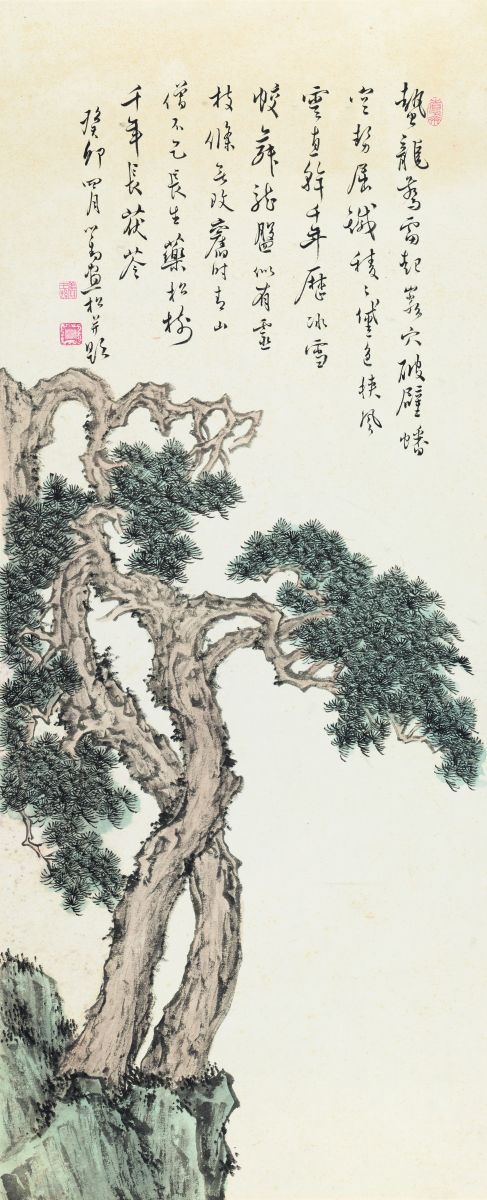 蟄龍驚雷起巖穴破壁蟠
空勢屈鐵稜稜黛色挾風
雲直幹千年歷冰雪
蛟舞龍盤似有靈
枝條無改舊時青山
僧不乞長生藥松樹
千年長茯苓
癸卯四月心畬畫松并題